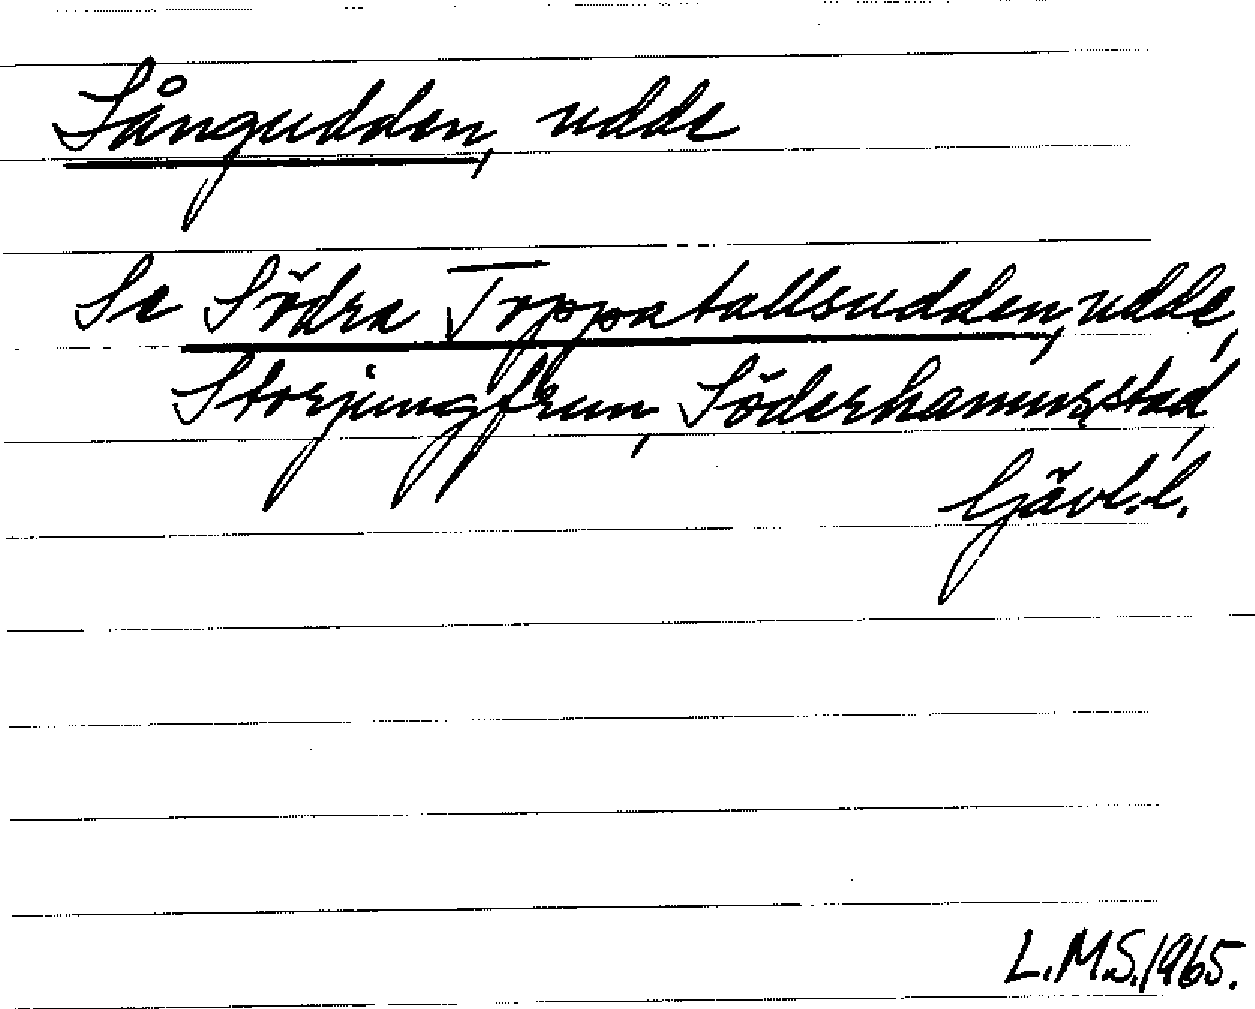 Sångudden, udde
Se Södra Toppatallsudden, udde,
Storjungfrun, Söderhamns stad,
Gävl.l.
L.M.S. 1965.